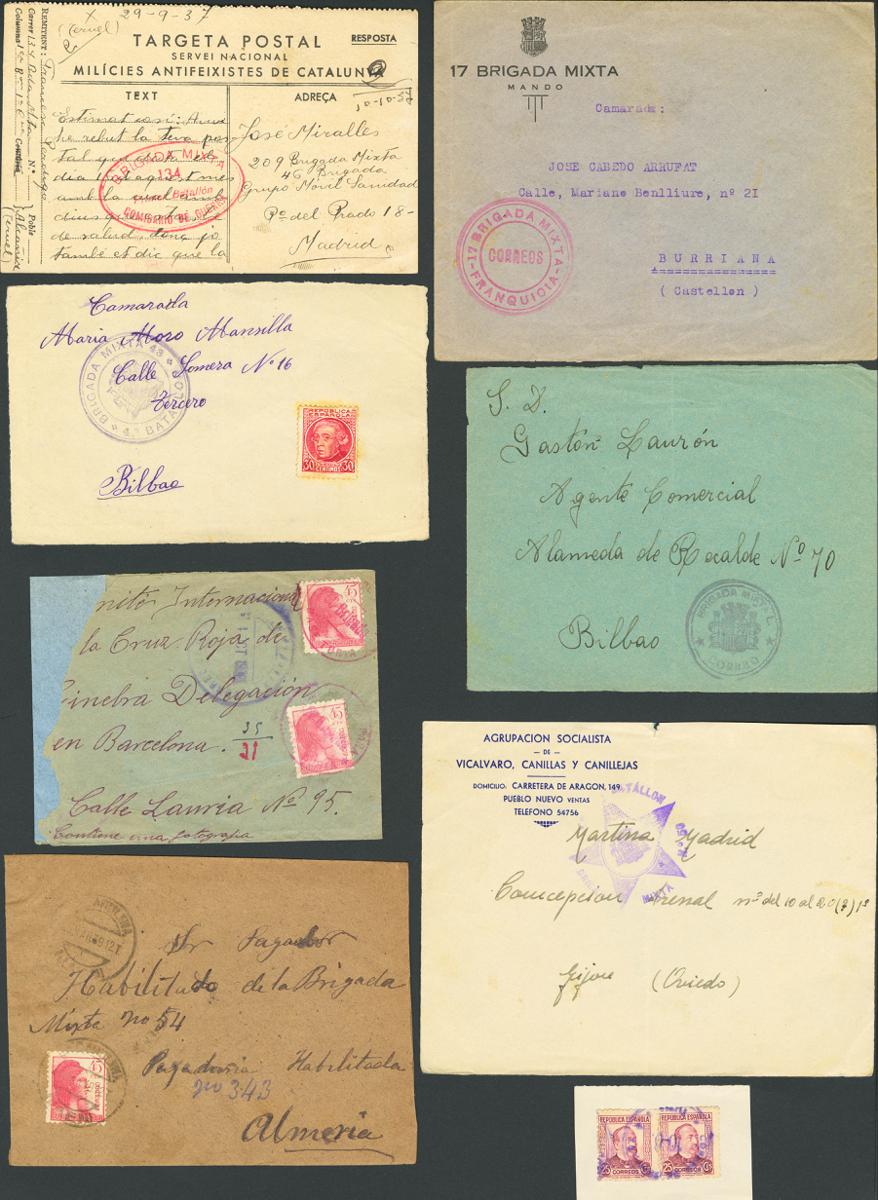 29-9-37
(Teruel)
TARGETA POSTAL
RESPOSTA
SERVEI NACIONAL
MILÍCIES ANTIFEIXISTES DE CATALUNYA
10-10-37
REMITENT: Francesc
Carrer 134 Brda Mixta N.º
Columna
Centúria
Poble Alcañiz
(Teruel)
TEXT
Estimat cosí: Avui
he rebut la teva pos
tal
dia
amb la qual
dius
de salud, dong jo
també et dic que la
BRIGADA MIXTA
134
Batallón
COMISARIO DE GUERRA
ADREÇA
José Miralles
209 Brigada Mixta
46 Brigada
Grupo Móvil Sanidad
Pº del Prado 18-
Madrid
17 BRIGADA MIXTA
MANDO
Camarada:
JOSE CABEDO ARRUFAT
Calle, Mariano Benlliure, nº 21
BURRIANA
(Castellon)
17 BRIGADA MIXTA
CORREOS
FRANQUICIA
Camarada
Maria Moro Mansilla
Calle Somera Nº 16
Tercero
Bilbao
BRIGADA MIXTA 48
4º BATALLON
REPUBLICA
ESPAÑOLA
30 CENTIMOS 30
S. D.
Gastón Laurón
Agente Comercial
Alameda de Recalde Nº 70
Bilbao
BRIGADA MIXTA
CORREO
mité Internacional
la Cruz Roja de
Ginebra Delegación
en Barcelona.
35
21
Calle Lauria Nº 95.
Contiene una fotografia
45
45
AGRUPACION SOCIALISTA
- DE -
VICALVARO, CANILLAS Y CANILLEJAS
DOMICILIO: CARRETERA DE ARAGON, 149
PUEBLO NUEVO VENTAS
TELEFONO 54756
BATALLON
MIXTA
Martina Madrid
Concepcion Arenal nº del 10 al 20
Gijon (Oviedo)
Sr Pagador
Habilitado de la Brigada
Mixta no 54
Pagaduria Habilitada
no 343
Almeria
45
REPUBLICA ESPAÑOLA
REPUBLICA ESPAÑOLA
25 CORREOS Cts
25 CORREOS Cts